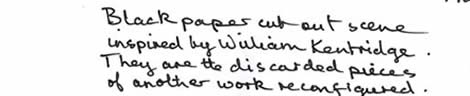 Black paper cut out scene
inspired by William Kentridge.
They are the discarded pieces
of another work reconfigured.